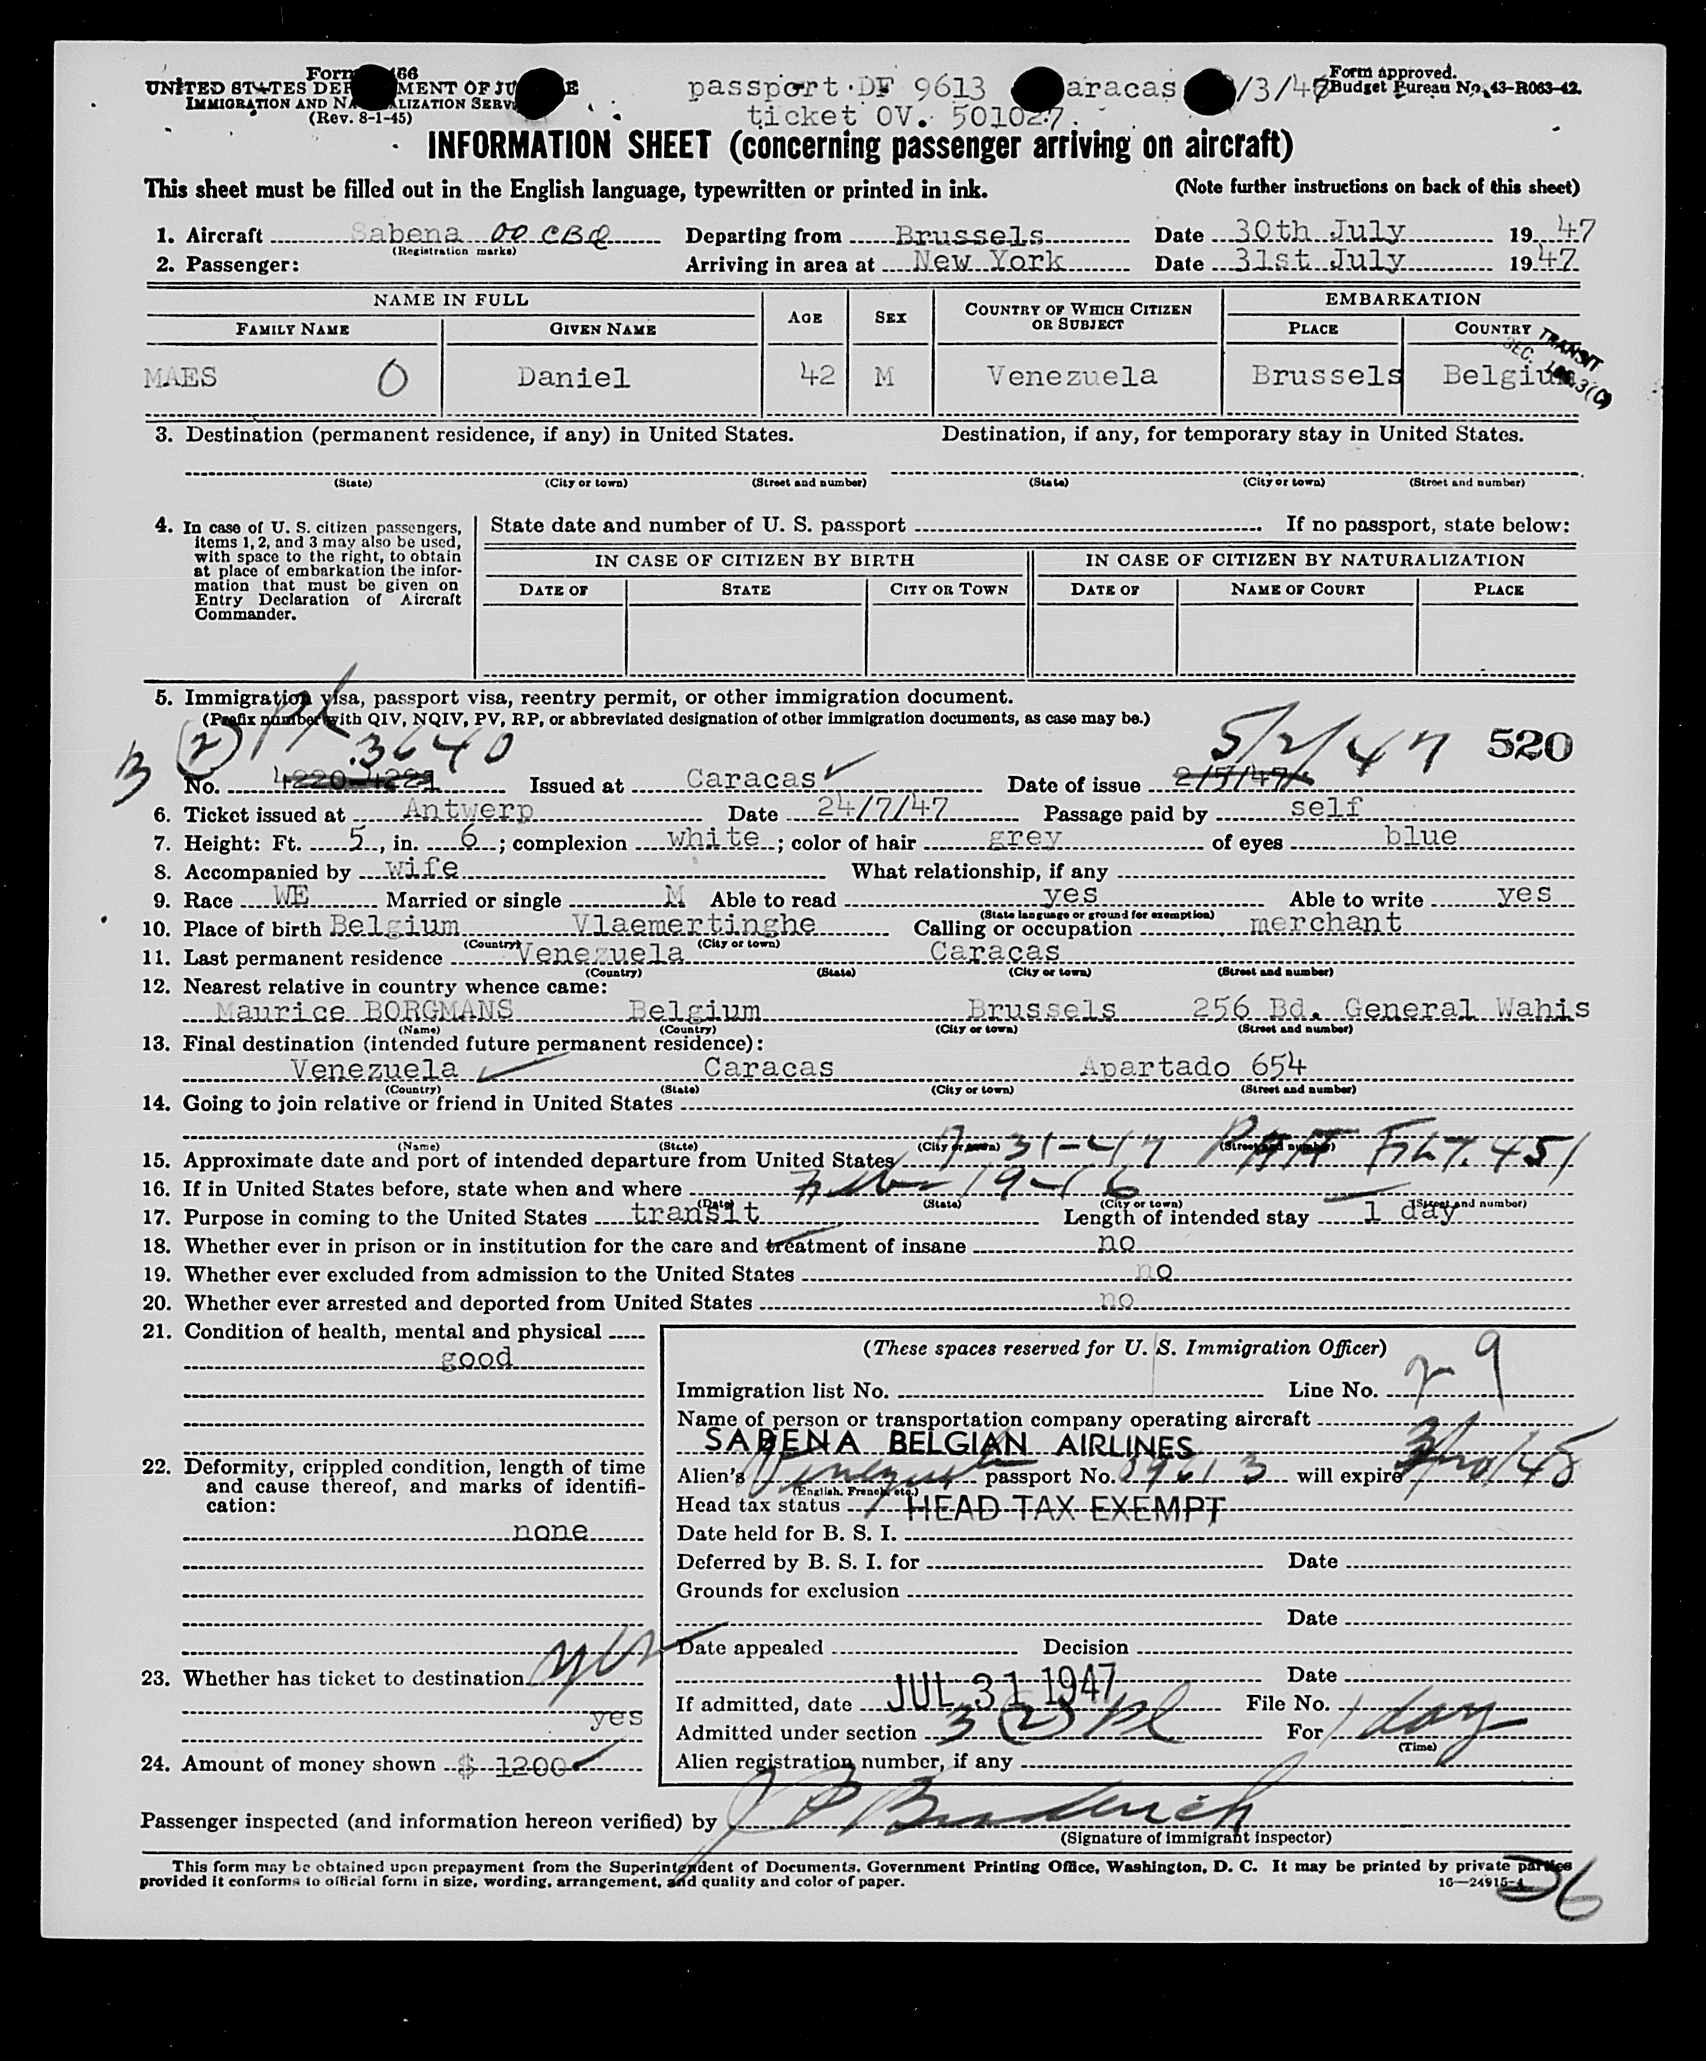 Form 66
UNITED STATES DEP MENT OF JU E
IMMIGRATION AND NA LIZATION SERV
(Rev. 8-1-45)
passport DF 9613 aracas /3/47
ticket OV. 501027.
Form approved.
Budget Bureau No. 43-R063-42.
INFORMATION SHEET (concerning passenger arriving on aircraft)
This sheet must be filled out in the English language, typewritten or printed in ink. (Note further instructions on back of this sheet)
1. Aircraft Sabena OO CBQ Departing from Brussels Date 30th July 19 47
(Registration marks)
2. Passenger: Arriving in area at New York Date 31st July 19 47
NAME IN FULL AGE SEX COUNTRY OF WHICH CITIZEN OR SUBJECT EMBARKATION
FAMILY NAME GIVEN NAME PLACE COUNTRY
TRANSIT
MAES O Daniel 42 M Venezuela Brussels Belgium
3. Destination (permanent residence, if any) in United States. Destination, if any, for temporary stay in United States.
(State) (City or town) (Street and number) (State) (City or town) (Street and number)
4. In case of U. S. citizen passengers, items 1, 2, and 3 may also be used, with space to the right, to obtain at place of embarkation the information that must be given on Entry Declaration of Aircraft Commander.
State date and number of U. S. passport If no passport, state below:
IN CASE OF CITIZEN BY BIRTH IN CASE OF CITIZEN BY NATURALIZATION
DATE OF STATE CITY OR TOWN DATE OF NAME OF COURT PLACE
5. Immigration visa, passport visa, reentry permit, or other immigration document.
(Prefix number with QIV, NQIV, PV, RP, or abbreviated designation of other immigration documents, as case may be.)
3 (2) pl 3640 5/2/47 520
No. 4220-4221 Issued at Caracas Date of issue 2/7/47
6. Ticket issued at Antwerp Date 24/7/47 Passage paid by self
7. Height: Ft. 5, in. 6; complexion white; color of hair grey of eyes blue
8. Accompanied by wife What relationship, if any
9. Race WE Married or single M Able to read yes Able to write yes
(State language or ground for exemption)
10. Place of birth Belgium Vlaemertinghe Calling or occupation merchant
(Country) (City or town)
11. Last permanent residence Venezuela Caracas
(Country) (State) (City or town) (Street and number)
12. Nearest relative in country whence came:
Maurice BORGMANS Belgium Brussels 256 Bd. General Wahis
(Name) (Country) (City or town) (Street and number)
13. Final destination (intended future permanent residence):
Venezuela Caracas Apartado 654
(Country) (State) (City or town) (Street and number)
14. Going to join relative or friend in United States
(Name) (State) (City or town) (Street and number)
15. Approximate date and port of intended departure from United States 7-31-47 451
16. If in United States before, state when and where
(Date) (State) (City or town) (Street and number)
17. Purpose in coming to the United States transit Length of intended stay 1 day
18. Whether ever in prison or in institution for the care and treatment of insane no
19. Whether ever excluded from admission to the United States no
20. Whether ever arrested and deported from United States no
21. Condition of health, mental and physical
good
22. Deformity, crippled condition, length of time and cause thereof, and marks of identification:
none
23. Whether has ticket to destination yes
yes
24. Amount of money shown $ 1200
(These spaces reserved for U. S. Immigration Officer)
Immigration list No. Line No. 9
Name of person or transportation company operating aircraft
SABENA BELGIAN AIRLINES
Alien's Venezuela passport No. 9613 will expire
(English, French, etc.)
Head tax status HEAD TAX EXEMPT
Date held for B. S. I.
Deferred by B. S. I. for Date
Grounds for exclusion
Date
Date appealed Decision
Date
If admitted, date JUL 31 1947 File No.
Admitted under section 3 (2) pl For 1 day
(Time)
Alien registration number, if any
Passenger inspected (and information hereon verified) by
(Signature of immigrant inspector)
This form may be obtained upon prepayment from the Superintendent of Documents, Government Printing Office, Washington, D. C. It may be printed by private parties
provided it conforms to official form in size, wording, arrangement, and quality and color of paper. 16—24915-1